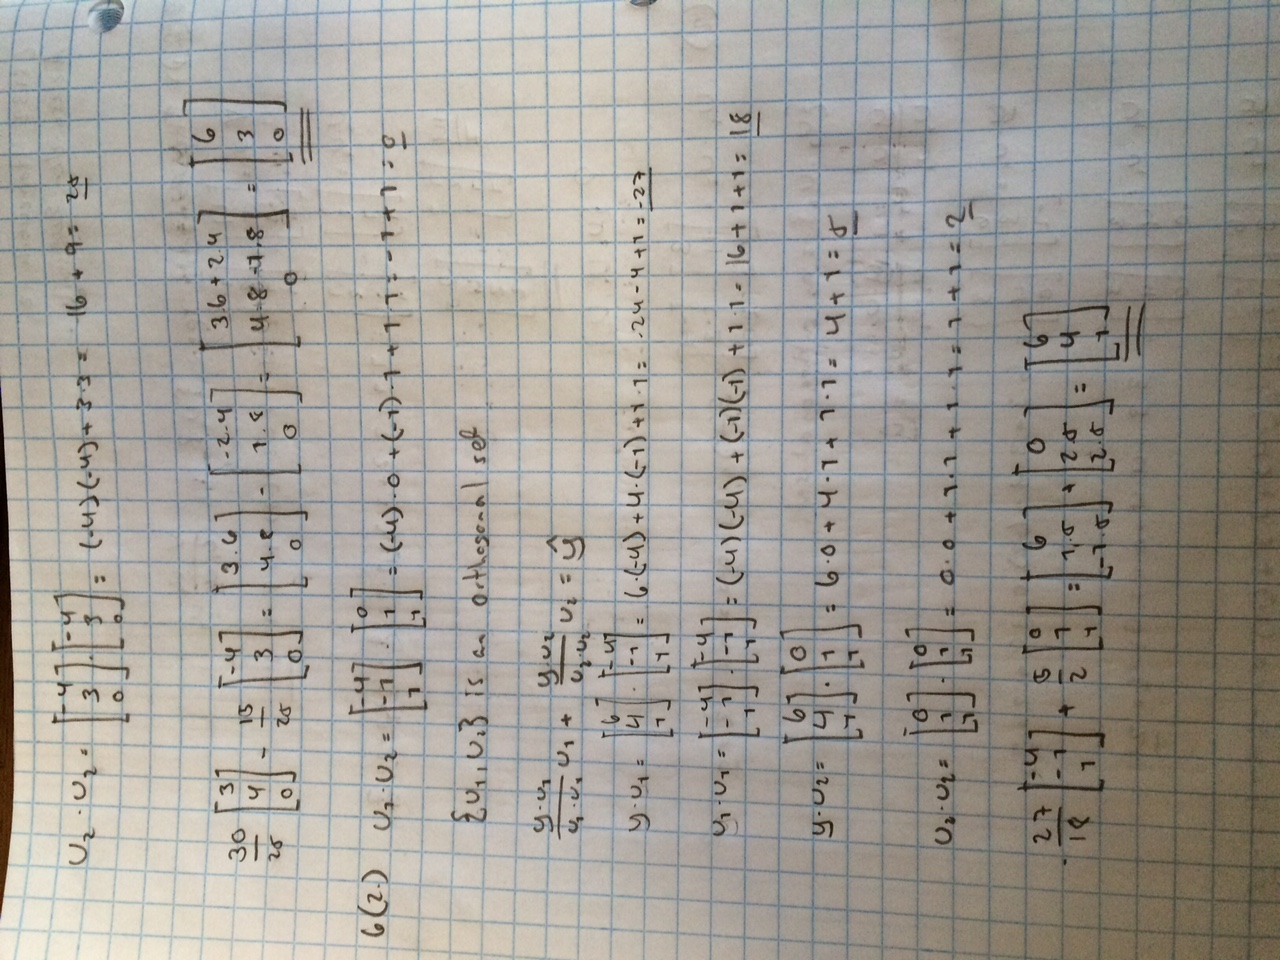 U₂ · U₂ = [-4 3 0] · [-4 3 0] = (-4)(-4) + 3·3 = 16 + 9 = 25
30/25 [3 4 0] - 15/25 [-4 3 0] = [3.6 4.8 0] - [-2.4 1.8 0] = [3.6 + 2.4 4.8 - 1.8 0] = [6 3 0]
6(2.) U₁ · U₂ = [-4 -1 1] · [0 1 1] = (-4)·0 + (-1)·1 + 1·1 = -1 + 1 = 0
{U₁, U₂} is an orthogonal set
y·u₁/u₁·u₁ U₁ + y·u₂/u₂·u₂ U₂ = ŷ
y·u₁ = [6 4 1] · [-4 -1 1] = 6·(-4) + 4·(-1) + 1·1 = -24 - 4 + 1 = -27
u₁·u₁ = [-4 -1 1] · [-4 -1 1] = (-4)(-4) + (-1)(-1) + 1·1 = 16 + 1 + 1 = 18
y·u₂ = [6 4 1] · [0 1 1] = 6·0 + 4·1 + 1·1 = 4 + 1 = 5
U₂·U₂ = [0 1 1] · [0 1 1] = 0·0 + 1·1 + 1·1 = 1 + 1 = 2
-27/18 [-4 -1 1] + 5/2 [0 1 1] = [6 1.5 -1.5] + [0 2.5 2.5] = [6 4 1]